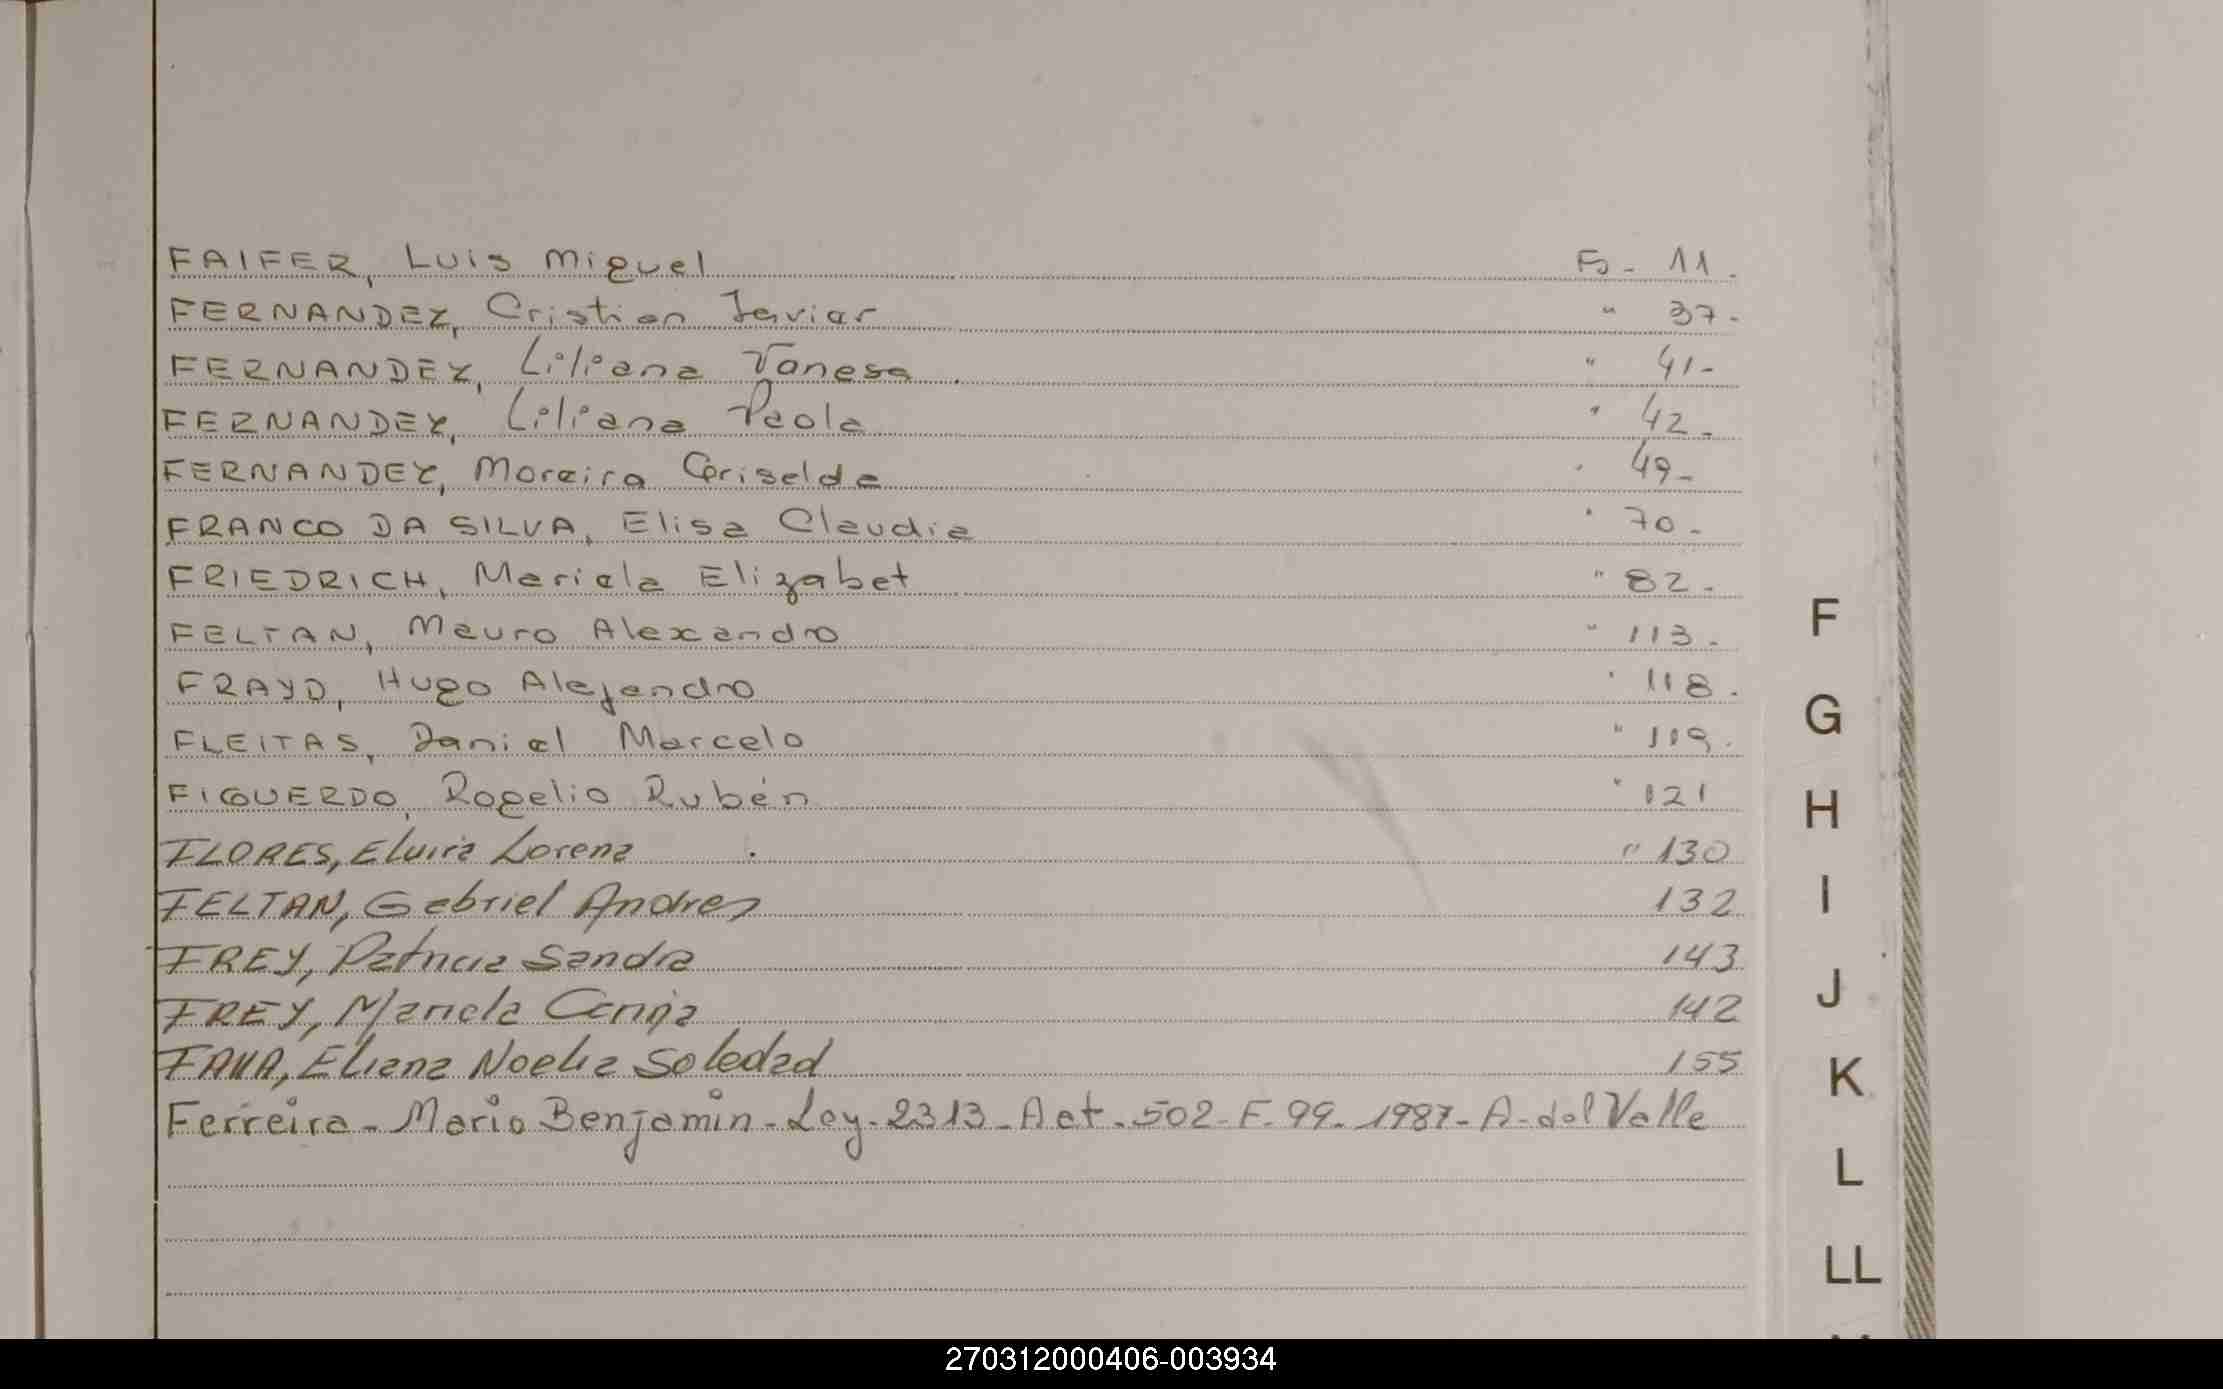 FAIFER, Luis Miguel Fo - 11 -
FERNANDEZ, Cristian Javier " 37 -
FERNANDEZ, Liliana Vanesa . " 41 -
FERNANDEZ, Liliana Paola " 42 -
FERNANDEZ, Moreira Griselda " 49 -
FRANCO DA SILVA, Elisa Claudia " 70 -
FRIEDRICH, Mariela Elizabet " 82 -
FELTAN, Mauro Alexandro " 113 -
FRAYD, Hugo Alejandro " 118 .
FLEITAS, Daniel Marcelo " 119 .
FIGUERDO, Rogelio Rubén " 121
FLORES, Elvira Lorena " 130
FELTAN, Gabriel Andres 132
FREY, Patricia Sandra 143
FREY, Mariela 142
Eliana Noelia Soledad 155
Ferreira - Mario Benjamin - Ley - 2313 - Act - 502 - F - 99 - 1987 - A - del Valle
F
G
H
I
J
K
L
LL
270312000406-003934